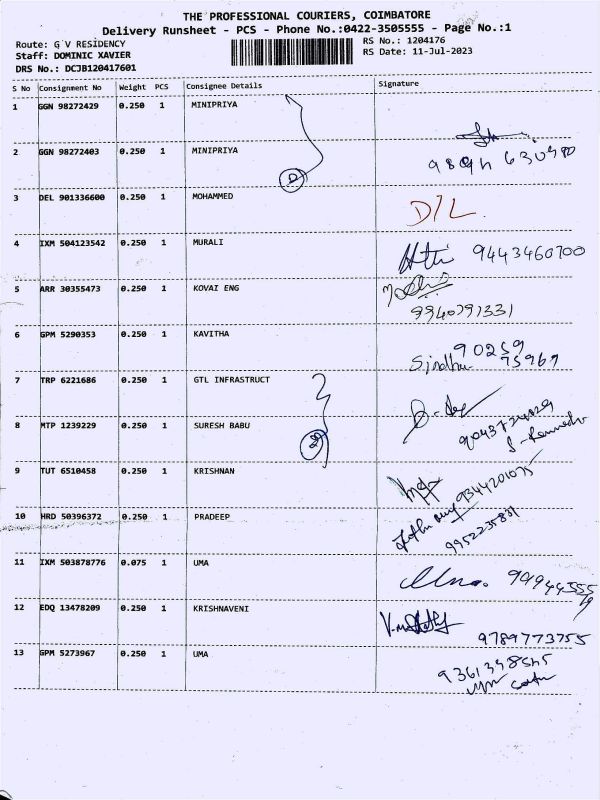 THE PROFESSIONAL COURIERS, COIMBATORE
Delivery Runsheet - PCS - Phone No.:0422-3505555 - Page No.:1
Route: G V RESIDENCY
RS No.: 1204176
Staff: DOMINIC XAVIER
RS Date: 11-Jul-2023
DRS No.: DCJB1204176O1
S No Consignment No Weight PCS Consignee Details Signature
1 GGN 98272429 0.250 1 MINIPRIYA
2 GGN 98272403 0.250 1 MINIPRIYA
3 DEL 901336600 0.250 1 MOHAMMED D/L
4 IXM 504123542 0.250 1 MURALI 9443460700
5 ARR 30355473 0.250 1 KOVAI ENG
9940791331
6 GPM 5290353 0.250 1 KAVITHA 90259
Sindhu 75967
7 TRP 6221686 0.250 1 GTL INFRASTRUCT
8 MTP 1239229 0.250 1 SURESH BABU
9 TUT 6510458 0.250 1 KRISHNAN 9344201075
10 HRD 50396372 0.250 1 PRADEEP
9952235831
11 IXM 503878776 0.075 1 UMA Uma.
12 EDQ 13478209 0.250 1 KRISHNAVENI
9789773755
13 GPM 5273967 0.250 1 UMA